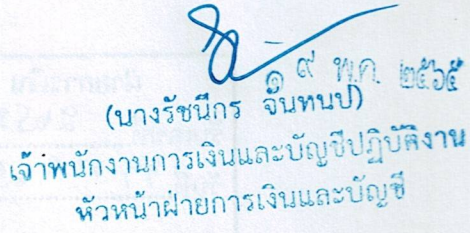 ๑๙ พ.ค. ๒๕๖๕
(นางรัชนีกร จันทนป)
เจ้าพนักงานการเงินและบัญชีปฏิบัติงาน
หัวหน้าฝ่ายการเงินและบัญชี